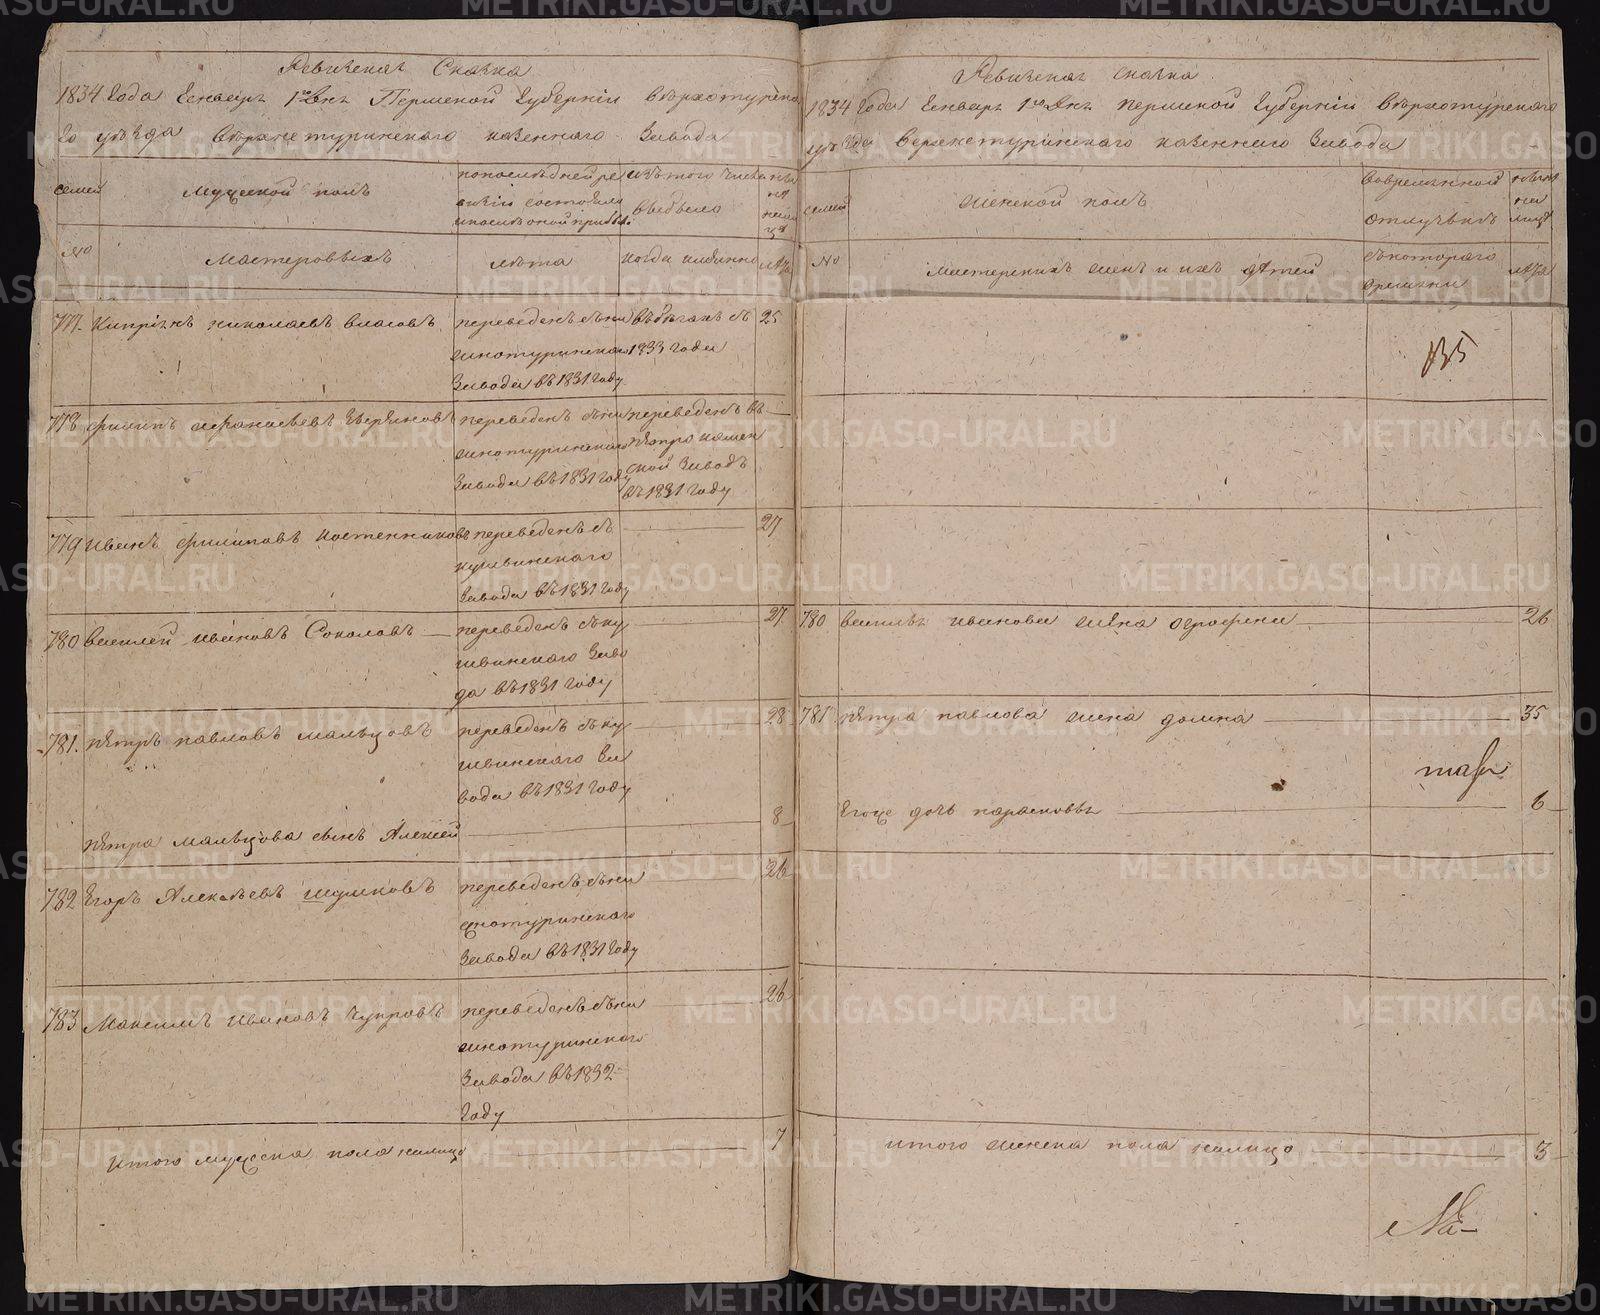 Ревизская Сказка
1834 Года Генваря 1го дня Пермской Губернiи Верхотурска
го уѣзда Верхнетуринского казенного Завода
семьи
Мужеской полъ
по последней ре
визiи состояло
и после оной прибы.
изъ того числа
выбыло
ны
нѣ
на ли
цо
№
Мастеровыхъ
лѣта
когда имянно
лѣта
777. Кипрiянъ николаевъ власовъ
переведенъ съ ни
жнотуринского
Завода въ 1831 Году
въ бегахъ съ
1833 Года
25
778 филипъ афанасьевъ
переведенъ съ ни
жнотуринского
Завода въ 1831 Году
переведенъ въ
петрокамен
ской Заводъ
въ 1831 Году
779 иванъ филиповъ костенниковъ
переведенъ съ
кушвинского
Завода въ 1831 Году
27
780 василей ивановъ Соколовъ
переведенъ съ ку
швинского Заво
да въ 1831 Году
27
781. петръ павловъ мальцовъ
переведенъ съ ку
швинского За
вода въ 1831 Году
28
петра мальцова сынъ Алексей
8
782 Егоръ Алексеевъ
переведенъ съ ни
жнотуринского
Завода въ 1831 Году
26
783 Максимъ ивановъ Чупровъ
переведенъ съ ни
жнотуринского
Завода въ 1832
Году
26
итого мужеска пола налицо
7
Ревизская сказка
1834 Года Генваря 1го дня пермской Губернiи Верхотурского
уѣзда Верхнетуринского казенного Завода
семьи
Женской полъ
во временной
отлучкѣ
ны нѣ
на
лицо
№
Мастерскихъ женъ и ихъ детей
съ которого
времени
лѣта
135
780 василья иванова жена Огрофена
26
781 петра павлова жена домна
35
Егоже дочь парасковья
6
итого женска пола налицо
3
METRIKI.GASO-URAL.RU